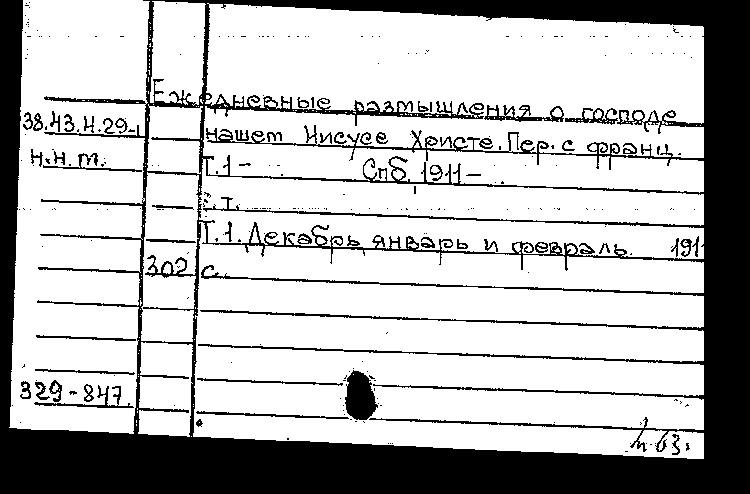 Ежедневные размышления о господе
38.43.4.29-1 нашем Иисусе Христе. Пер. с франц.
н.н.т. Т.1- Спб, 1911-
Е.т.
Т.1. Декабрь, январь и февраль. 191
302 с.
329-847.
63.